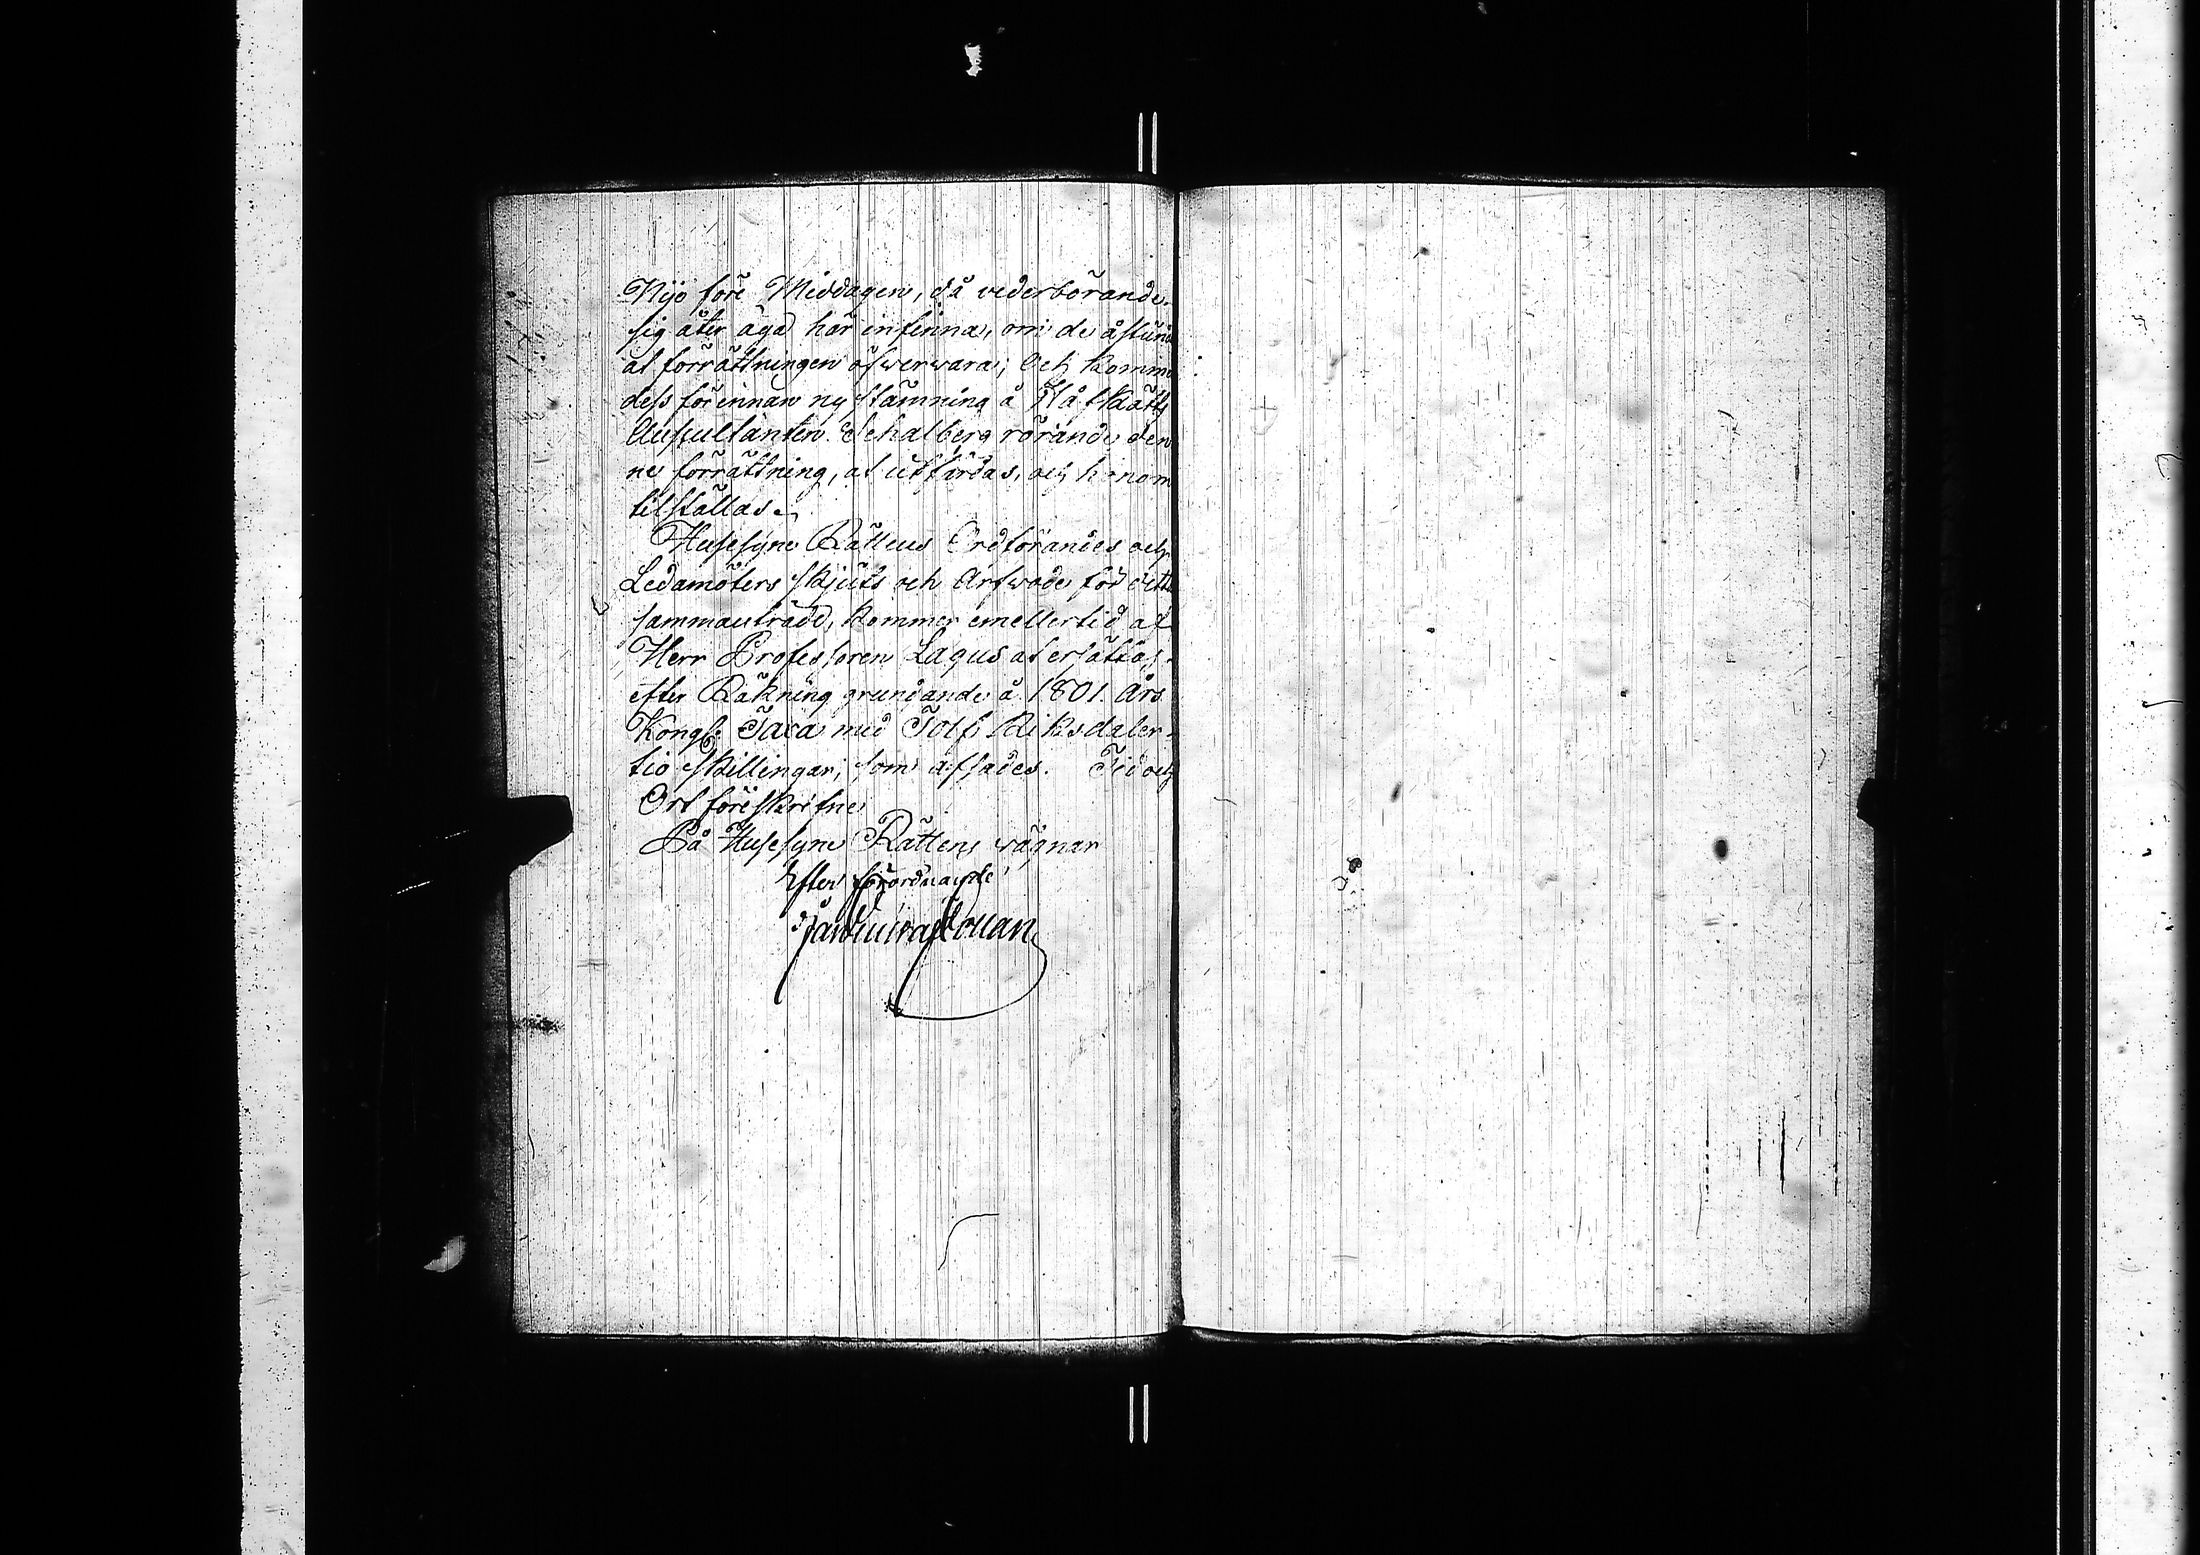 Nijo före Middagen, då vederbörande
sig åter äga här infinna, om de åstund
at förrättningen öfwerwara; och komme
dess förinnan ny stämning å HåfRätts
Auscultanten Schalberg rörande den
ne förrättning, at utfärdas, och honom
tilställas.
Husesyns Rättens Ordförandes och
Ledamöters skjuts och Arfwode för dett
sammanträde, kommer emellertid af
Herr Professoren Lagus at ersättas
efter Räkning grundande å 1801. Års
Kongl. Taxa med Tolf Riksdaler
tio skillingar; som afsades. Tid och
Ort föreskrifne
På Husesyns Rättens wägnar
Efter förordnande